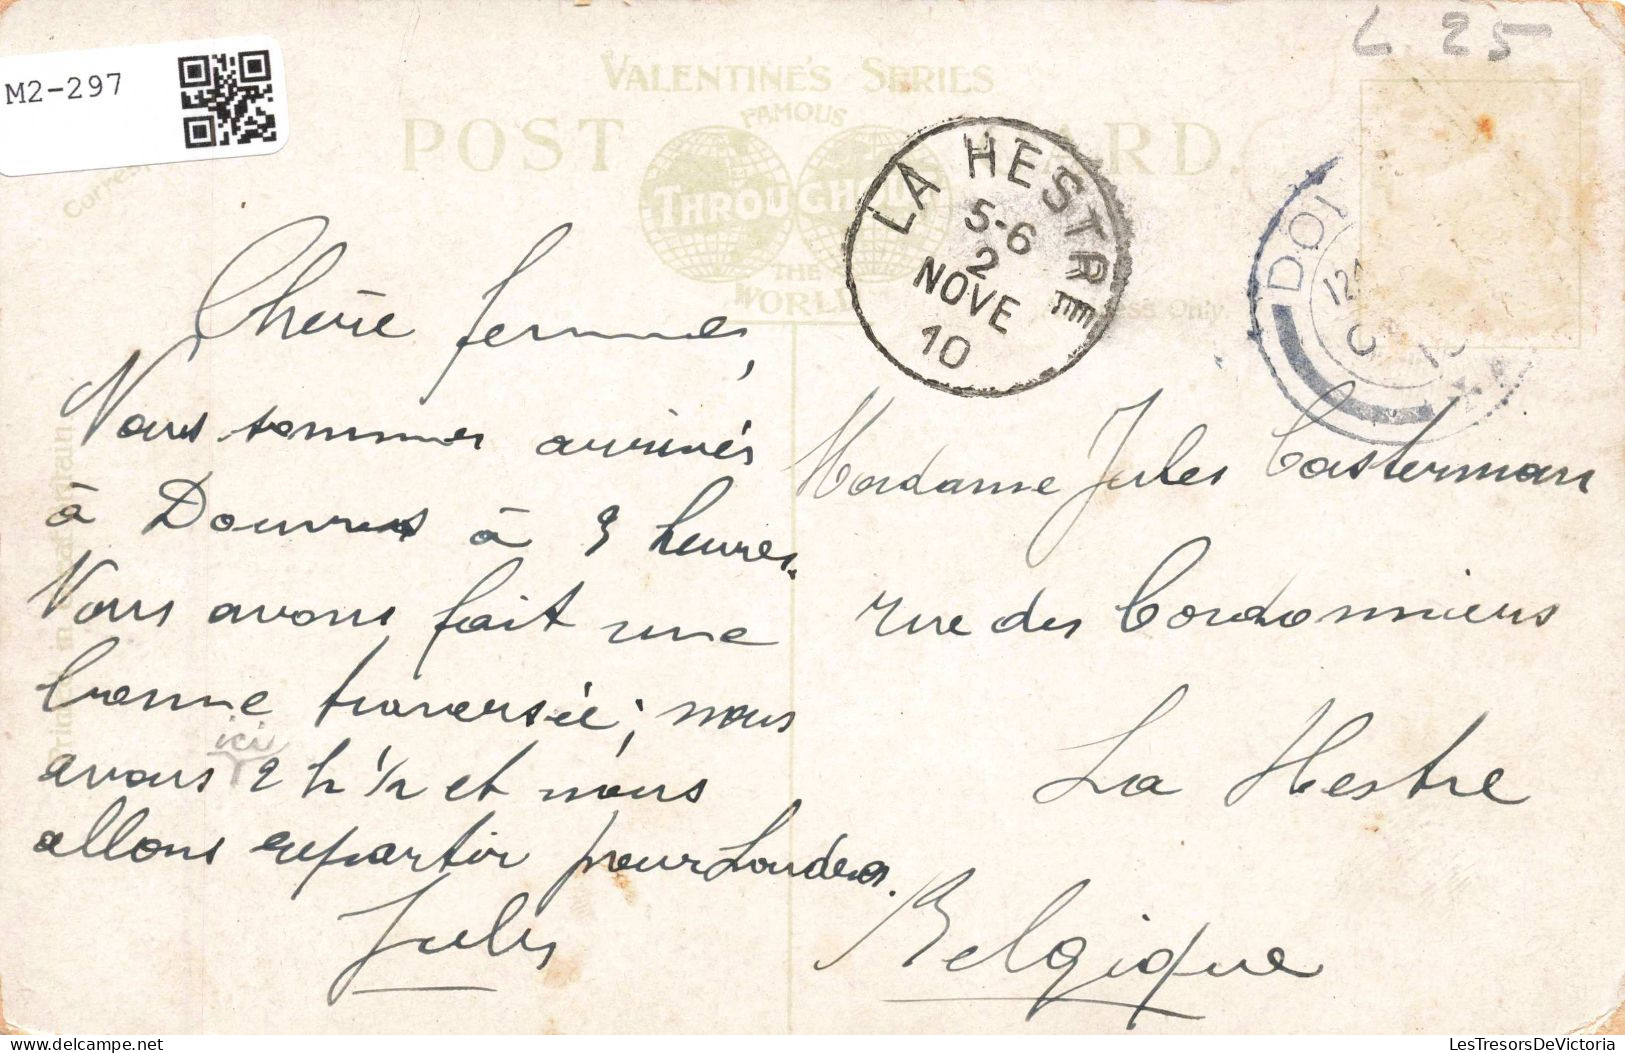 L 25
M2-297
VALENTINE'S SERIES
FAMOUS
POST CARD.
THROUGHOUT
THE
WORLD
LA HESTRE
5-6
2
NOVE
10
Only.
Chère femme,
Nous sommes arrivés
à Douvres à 3 heures.
Nous avons fait une
bonne traversée; nous
ici
avons 2 h 1/2 et nous
allons repartir pour Londres.
Jules
Madame Jules Casterman
rue des Cordonniers
La Hestre
Belgique
LesTresorsDeVictoria
delcampe.net